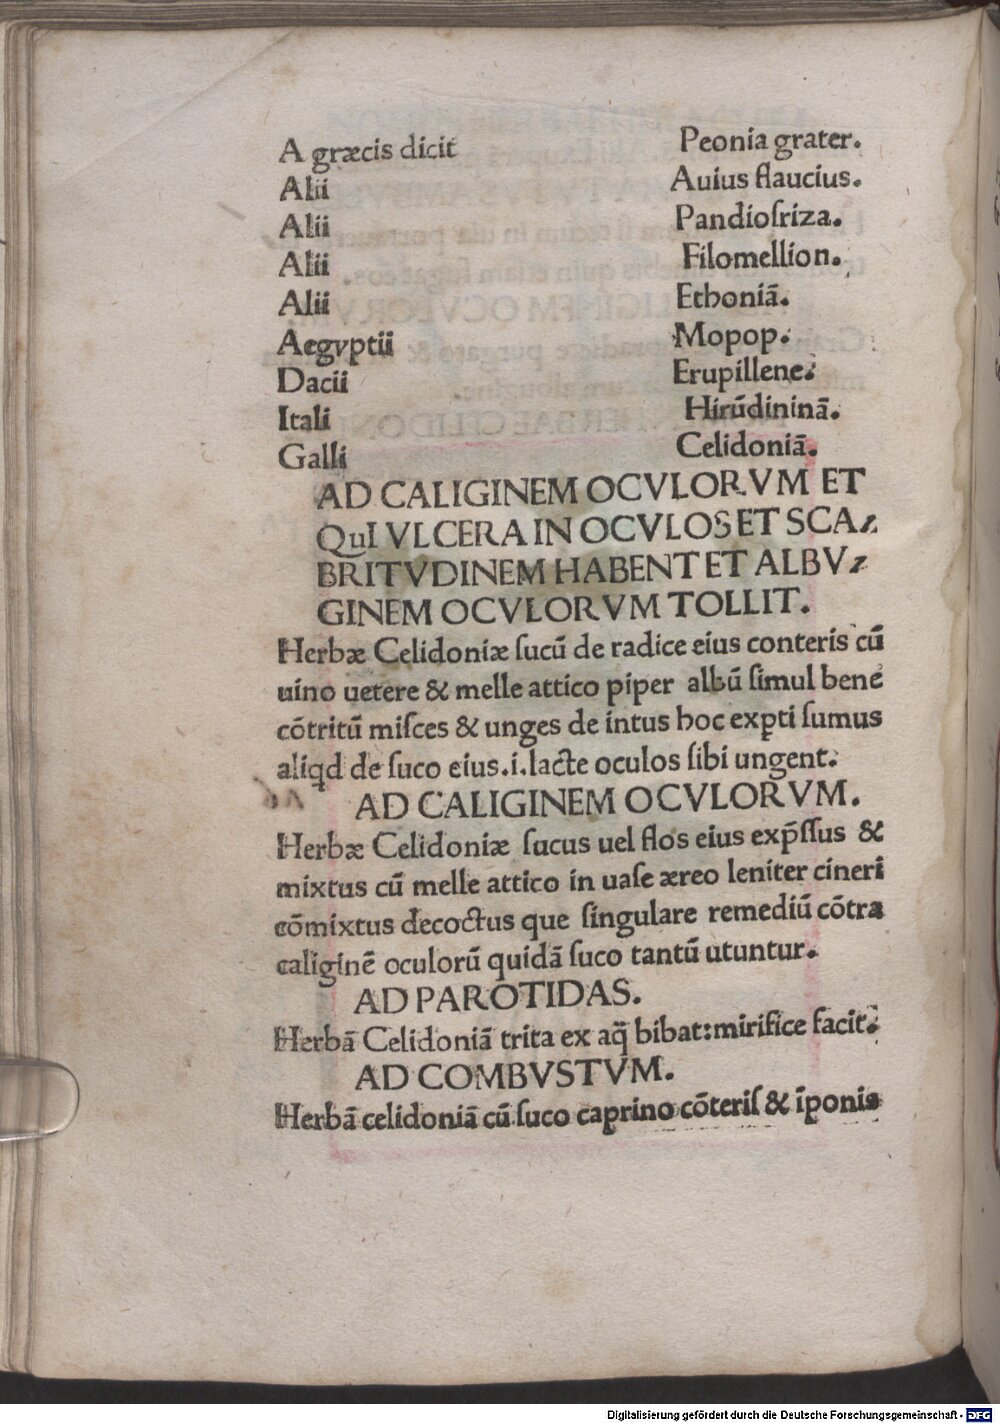 A græcis dicit Peonia grater.
Alii Auius flaucius.
Alii Pandioſriza.
Alii Filomellion.
Alii Ethoniā.
Aegyptii Mopop.
Dacii Erupillene.
Itali Hirūdininā.
Galli Celidoniā.
AD CALIGINEM OCVLORVM ET
QuI VLCERA IN OCVLOS ET SCA⸗
BRITVDINEM HABENT ET ALBV⸗
GINEM OCVLORVM TOLLIT.
Herbæ Celidoniæ ſucū de radice eius conteris cū
uino uetere & melle attico piper albū ſimul bene
cōtritū miſces & unges de intus hoc expti ſumus
aliqd de ſuco eius.i.lacte oculos ſibi ungent.
AD CALIGINEM OCVLORVM.
Herbæ Celidoniæ ſucus uel flos eius exp̄ſſus &
mixtus cū melle attico in uaſe æreo leniter cineri
cōmixtus decoctus que ſingulare remediū cōtra
caliginē oculorū quidā ſuco tantū utuntur.
AD PAROTIDAS.
Herbā Celidoniā trita ex aq̄ bibat:mirifice facit.
AD COMBVSTVM.
Herbā celidoniā cū ſuco caprino cōteriſ & īponis
Digitalisierung gefördert durch die Deutsche Forschungsgemeinschaft - DFG